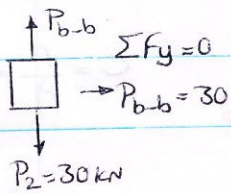 P_b-b
ΣFy=0
→P_b-b=30
P₂=30KN